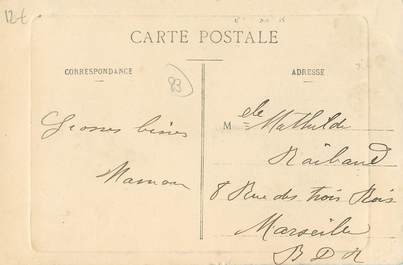 12 €
CARTE POSTALE
CORRESPONDANCE
ADRESSE
83
Grosses bises
Maman
Melle Mathilde
Raibaud
8 Rue des trois Rois
Marseille
B D R